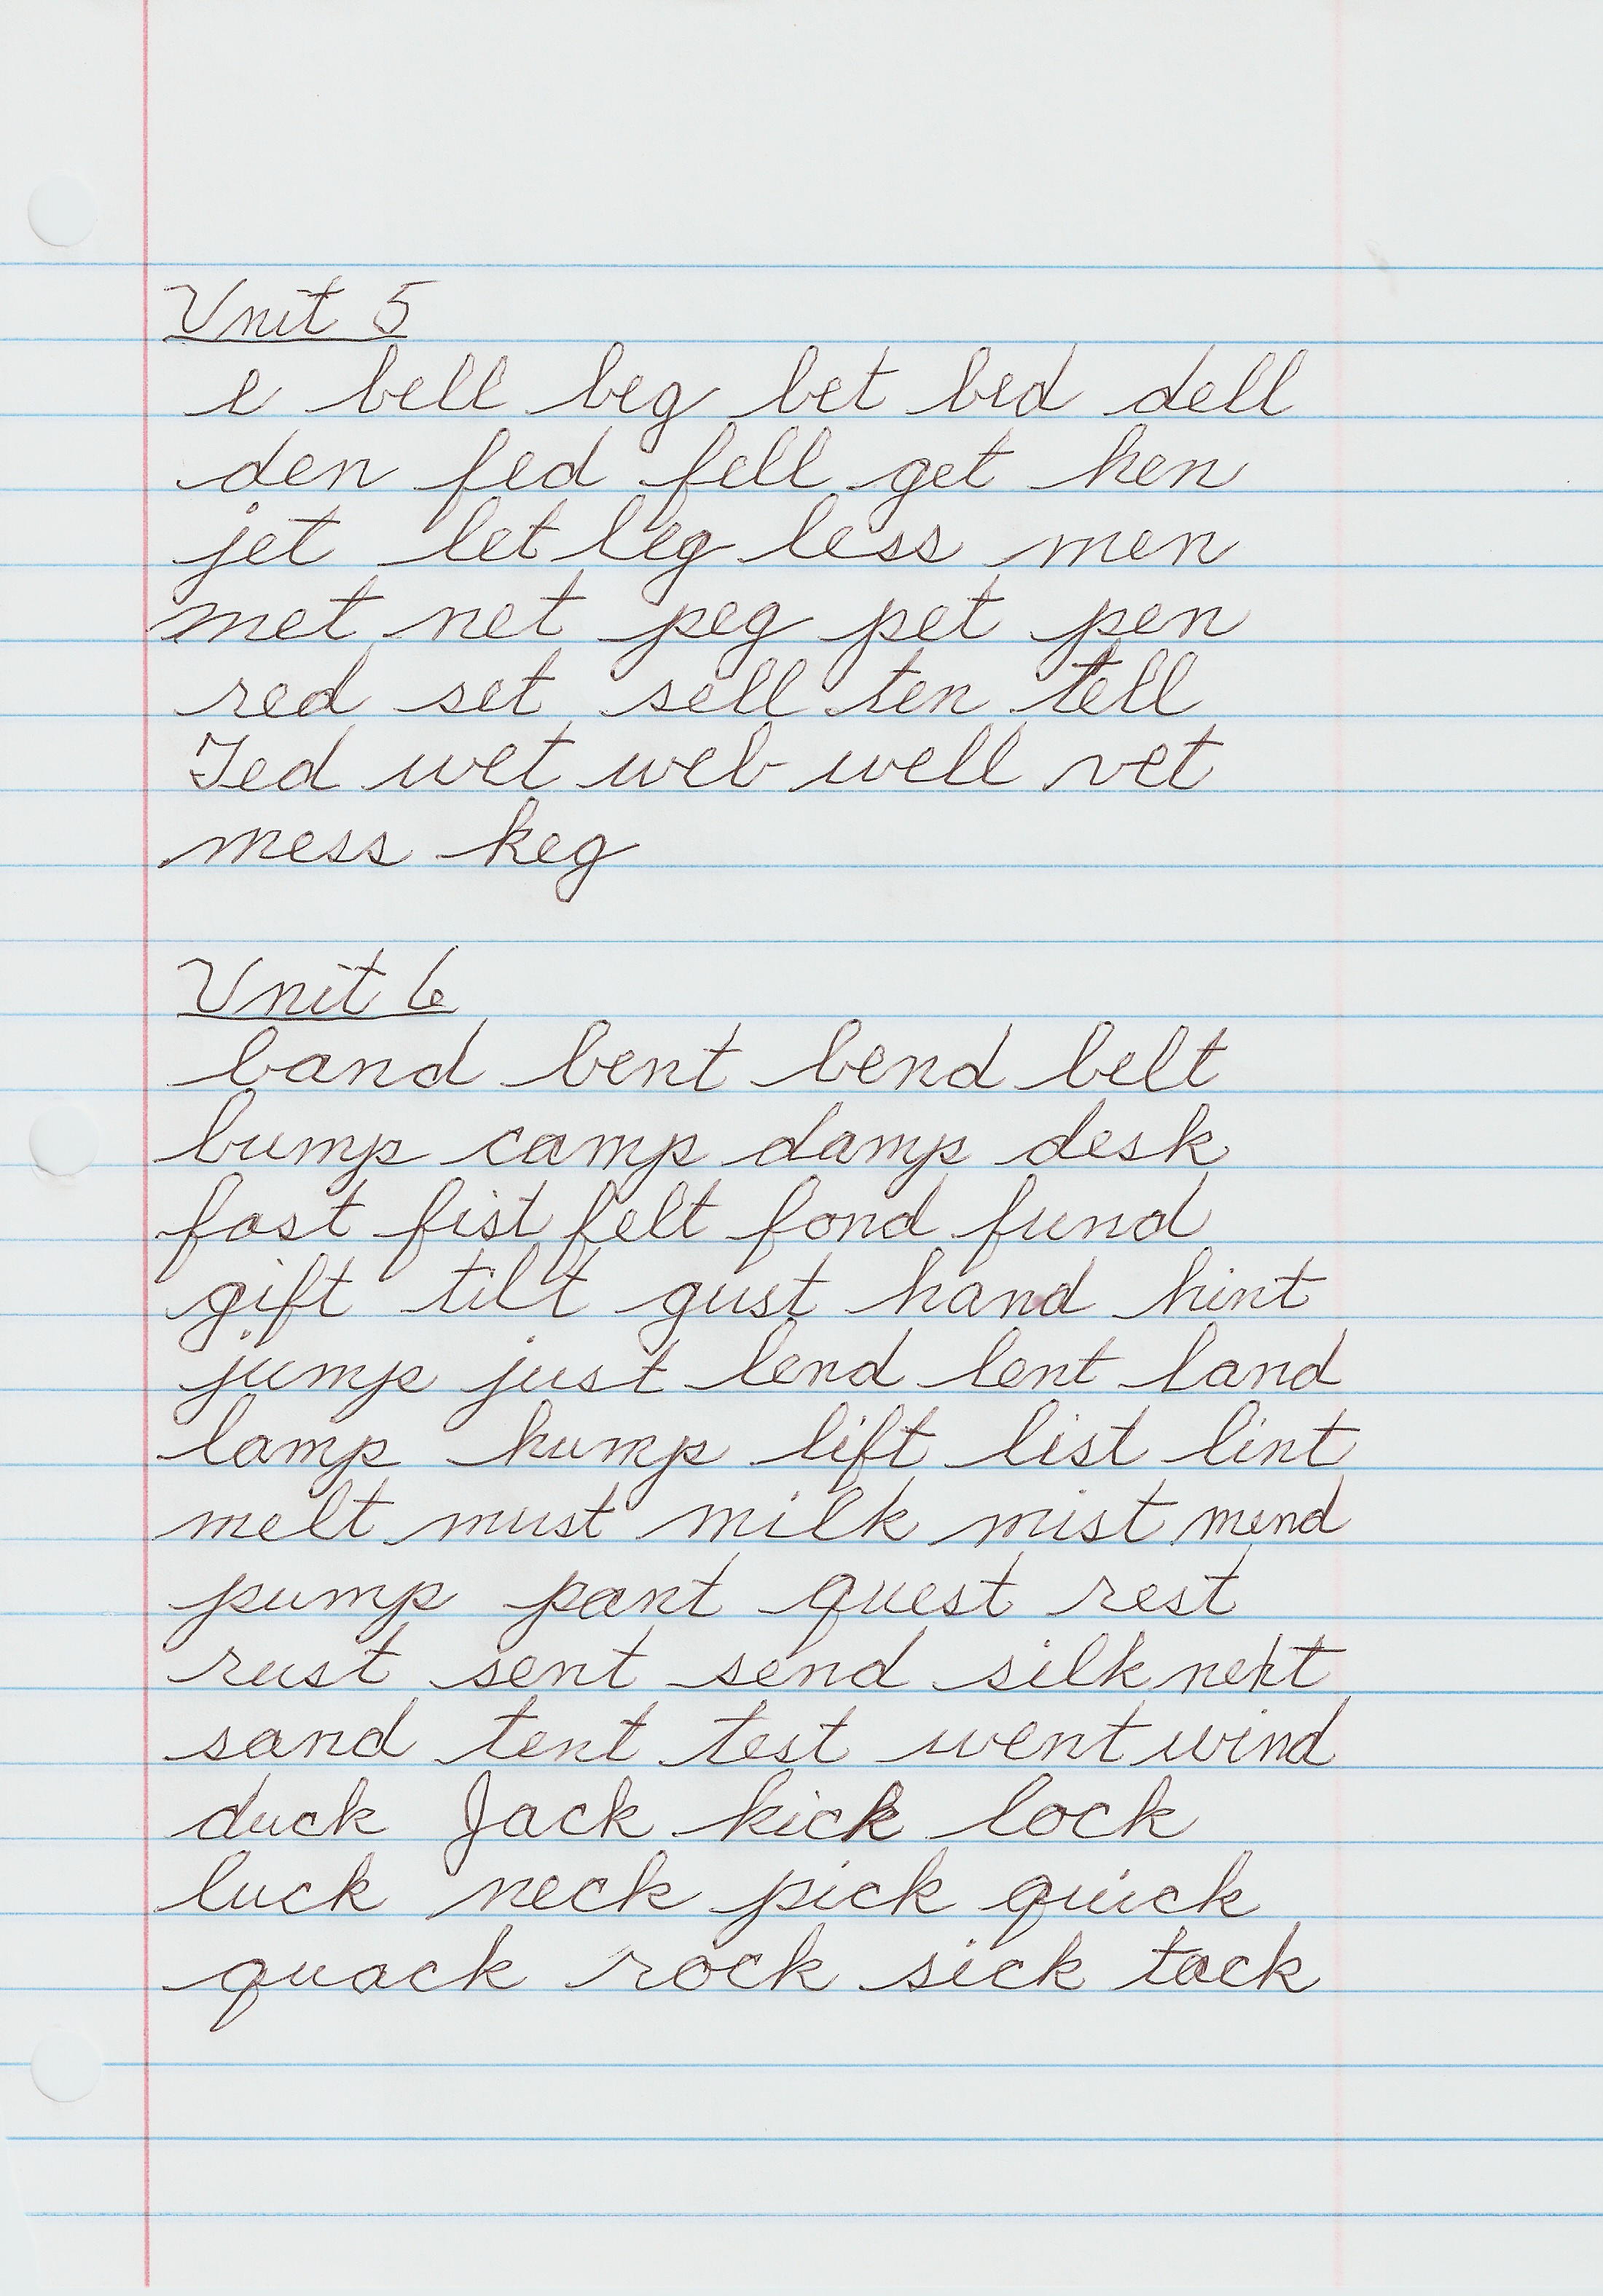 Unit 5
e bell beg bet bed dell
den fed fell get hen
jet let leg less men
met net peg pet pen
red set sell ten tell
Ted wet web well vet
mess keg
Unit 6
band bent bend belt
bump camp damp desk
fast fist felt fond fund
gift tilt gust hand hint
jump just lend lent land
lamp hump lift list lint
melt must milk mist mend
pump pant quest rest
rust sent send silk next
sand tent test went wind
duck Jack kick lock
luck neck pick quick
quack rock sick tack